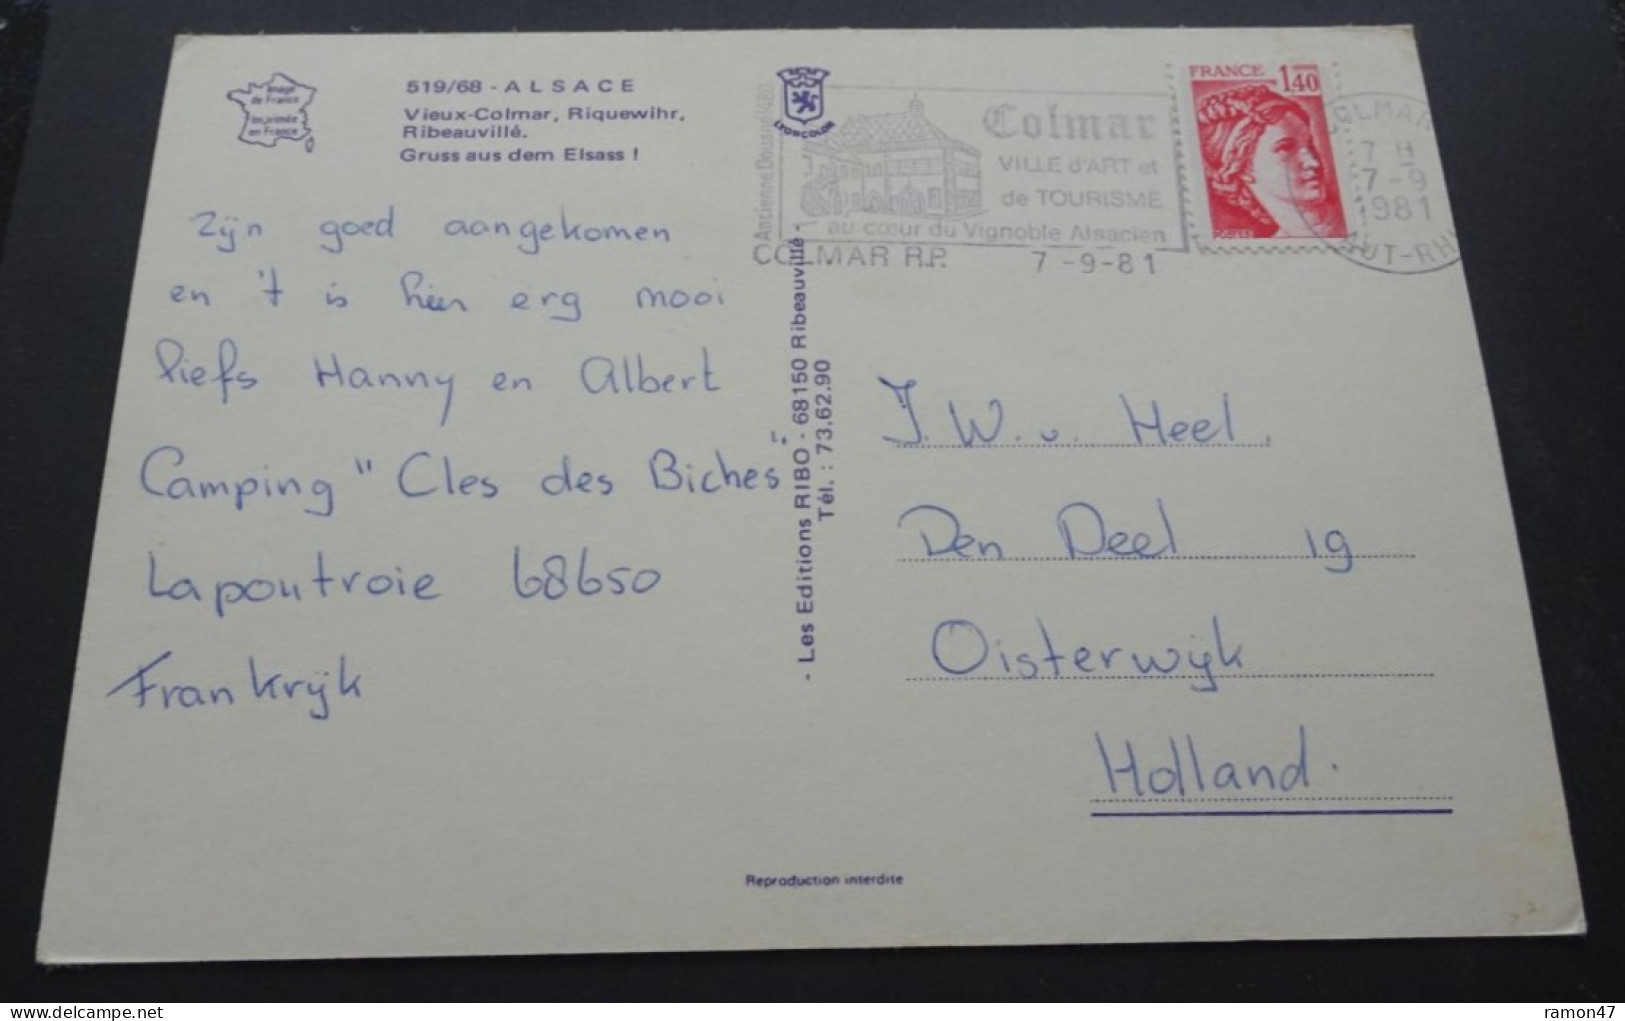 Image
de France
Imprimée
en France
519/68 - ALSACE
Vieux-Colmar, Riquewihr,
Ribeauvillé.
Gruss aus dem Elsass !
LYONCOLOR
Ancienne Douane
Colmar
VILLE d'ART et
de TOURISME
au cœur du Vignoble Alsacien
COLMAR R.P. 7 -9-81
FRANCE 1,40
POSTES
COLMAR
7 H
7-9
1981
HAUT-RHIN
Zijn goed aangekomen
en 't is hier erg mooi
liefs Hanny en Albert
Camping "Cles des Biches"
Lapoutroie 68650
Frankrijk
- Les Editions RIBO - 68150 Ribeauvillé -
Tél. : 73.62.90
J. W. v. Heel.
Den Deel 19
Oisterwijk
Holland.
Reproduction interdite
ramon47